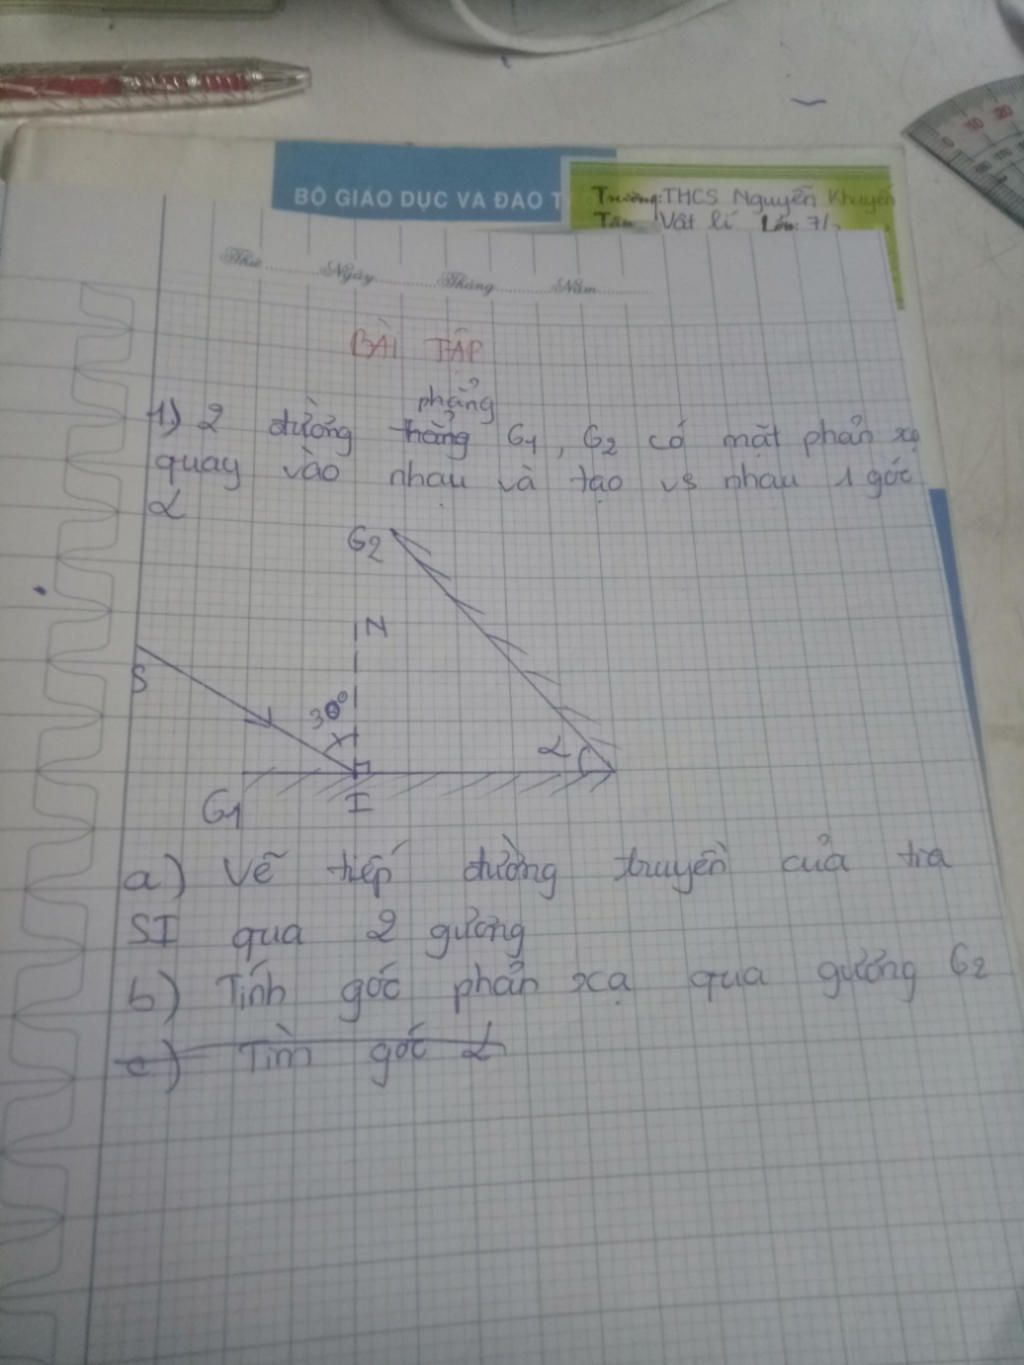 BỘ GIÁO DỤC VÀ ĐÀO T
Trường: THCS Nguyễn Khuyến
Vật lí Lớp: 7/
Thứ Ngày Tháng Năm
BÀI TẬP
phẳng
1) 2 đường thẳng G1, G2 có mặt phản xạ
quay vào nhau và tạo vs nhau 1 góc
α
G2
N
S
30°
α
G1
I
a) Vẽ tiếp đường truyền của tia
SI qua 2 gương
b) Tính góc phản xạ qua gương G2
c) Tính góc α
0 10 20